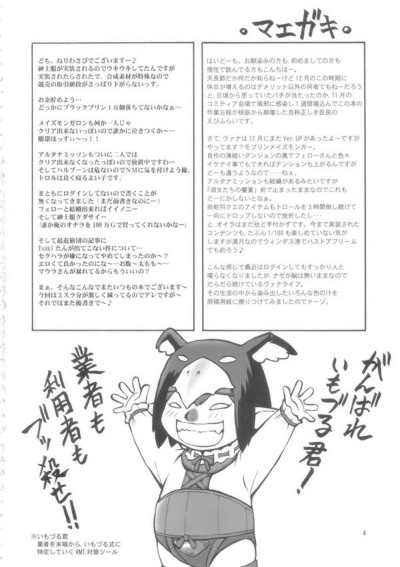 マエガキ
ども、ねりわさびでございますー♪
紳士服が実装されるのでウキウキしてたんですが
実装されたらされたで、合成素材が特殊なので
競売の取引値段がさっぱり下がらないっす。
お金貯めよう…
どっかにブラックプリン1万個落ちてないかなぁ…
メイズモンガロンも何か一人じゃ
クリア出来ないっぽいので誰かに泣きつくか…
眼帯ほっすぃ～っ!!
アルタナミッションも二人では
クリア出来なくなったっぽいので放置中ですわー
そしてハルブーンは俺がないのでNMに気付けよう俺。
トロルは良く寝るよい子です。
まともにログインしてないので書くことが
無くなってきました(まだ前書きなのにー)
フェローと結婚出来ればイイノニー
そして紳士服クダサイー
「誰か俺のオナラを100万Gで買ってくれないかなー」
そして最近族団の記事に
Tsukiたんが出てこない件について…
セクハラが嫌になってやめてしまったのか?
エロくて良かったのにな～お腹・太もも～…
マウラさんが暴れてるからもういいの?
まぁ、そんなこんなでまたいつもの本でございます～
今回はミスラ分が激しく減ってるのでアレですが～
それではまた後書きで～♪
はいどーも、お馴染みの方も、初めましての方も
惰性で読んでる方もこんちはー。
天長節だか何だか知らねーけど12月のこの時期に
休日が増えるのはデメリット以外の何者でもねーだろ!
と、日頃から思っていたバチが当たったのか、11月の
コミティア会場で風邪に感染!1週間寝込んでこの本の
作業日程が根底から崩壊した自称正しき臣民の
えびふらいです。
さて、ヴァナは12月にまたVer.UPがあったよーですが
やってます?モブリンメイズモンガー。
自作の薄暗いダンジョンの奥でフェローさんと色々
イケナイ事でもできればテンションも上がるんですが
どーも違うようなので……ねぇ。
アルタナミッションも結構があるみたいですが
「彼女たちの魔宴」前で止まったままなのでこれも
どーにかしないとなぁ。
炎蛇将クエのアイテムもトロールを3時間倒し続けて
一向にドロップしないので挫折したし…
と、オイラはまだ殆ど手付かずです。今まで実装された
コンテンツも、たぶん1/100も楽しめていない気が
しますが満月なのでウィンダス港でバストアプリーム
でも釣ろう♪
こんな感じで最近はログインしてもすっかり人と
喋らなくなりましたが、ナゼか脳は熱いままなので
だらだら続けているヴァナライフ。
その生活の中から染み出したいろんな色の汁を
原稿用紙に擦りつけてみましたのでドーゾ。
がんばれ
いもづる君!
業者も
利用者も
ブッ殺せ!!
※いもづる君
業者を末端から、いもづる式に
特定していくRMT対策ツール
4